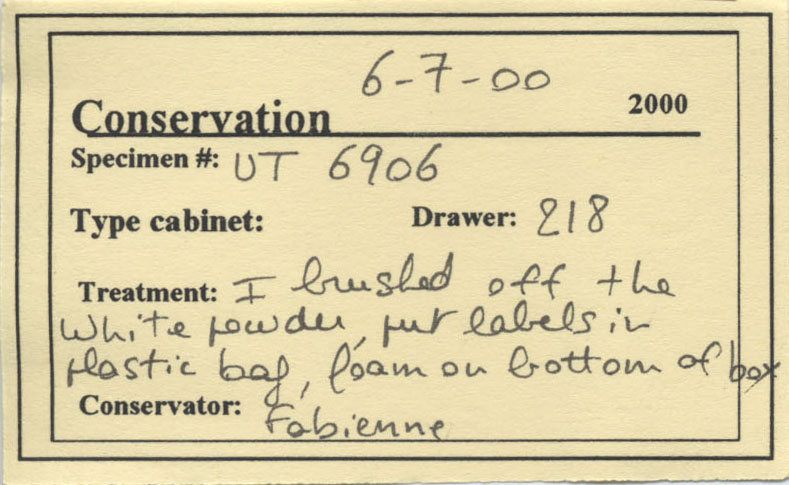 6-7-00
Conservation 2000
Specimen #: UT 6906
Type cabinet: Drawer: 218
Treatment: I brushed off the
white powder, put labels in
plastic bag, foam on bottom of box
Conservator: Fabienne